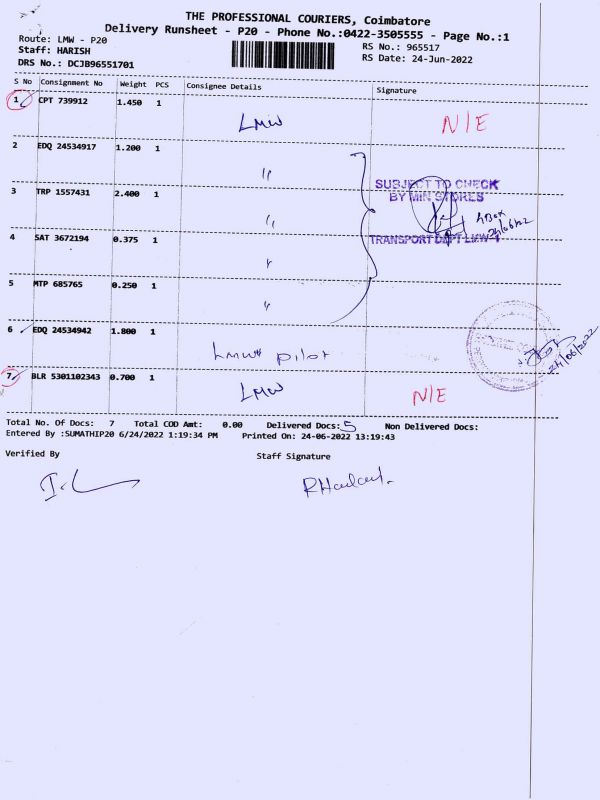 THE PROFESSIONAL COURIERS, Coimbatore
Delivery Runsheet - P20 - Phone No.:0422-3505555 - Page No.:1
Route: LMW - P20
RS No.: 965517
Staff: HARISH
RS Date: 24-Jun-2022
DRS No.: DCJB96551701
S No Consignment No Weight PCS Consignee Details Signature
1 CPT 739912 1.450 1
LMW N/E
2 EDQ 24534917 1.200 1
〃
SUBJECT TO CHECK
BY MIN STORES
3 TRP 1557431 2.400 1
〃
4 Box
24/06/22
TRANSPORT DEPT LMW
4 SAT 3672194 0.375 1
〃
5 MTP 685765 0.250 1
〃
6 EDQ 24534942 1.800 1
LMW pilot
24/06/2022
7 BLR 5301102343 0.700 1
LMW N/E
Total No. Of Docs: 7 Total COD Amt: 0.00 Delivered Docs: 5 Non Delivered Docs:
Entered By :SUMATHIP20 6/24/2022 1:19:34 PM Printed On: 24-06-2022 13:19:43
Verified By Staff Signature